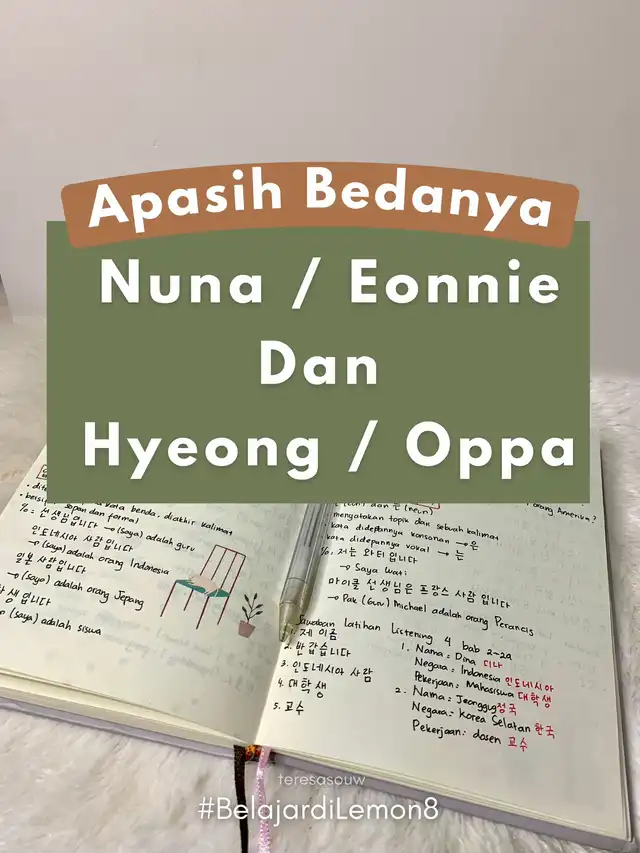 Apasih Bedanya
Nuna / Eonnie
Dan
Hyeong / Oppa
benda, diakhir kalimat
sopan dan formal
선생님입니다 → (saya) adalah guru
인도네시아 사람입니다
→ (saya) adalah orang Indonesia
일본 사람입니다
→ (saya) adalah orang Jepang
학생입니다
→ (saya) adalah siswa
orang Amerika?
dan 는 (neun)
menyatakan topik dan sebuah kalimat
kata didepannya konsonan → 은
kata didepannya vokal → 는
저는 와티입니다
→ Saya Wati
마이클 선생님은 프랑스 사람입니다
→ Pak (Guru) Michael adalah orang Perancis
Jawaban latihan Listening 4 bab 2-2a
1. 제 이름
2. 반갑습니다
3. 인도네시아 사람
4. 대학생
5. 교수
1. Nama = Dina 디나
Negara = Indonesia 인도네시아
Pekerjaan = Mahasiswa 대학생
2. Nama = Jeonggug 정국
Negara = Korea Selatan 한국
Pekerjaan: dosen 교수
teresasouw
#BelajardiLemon8